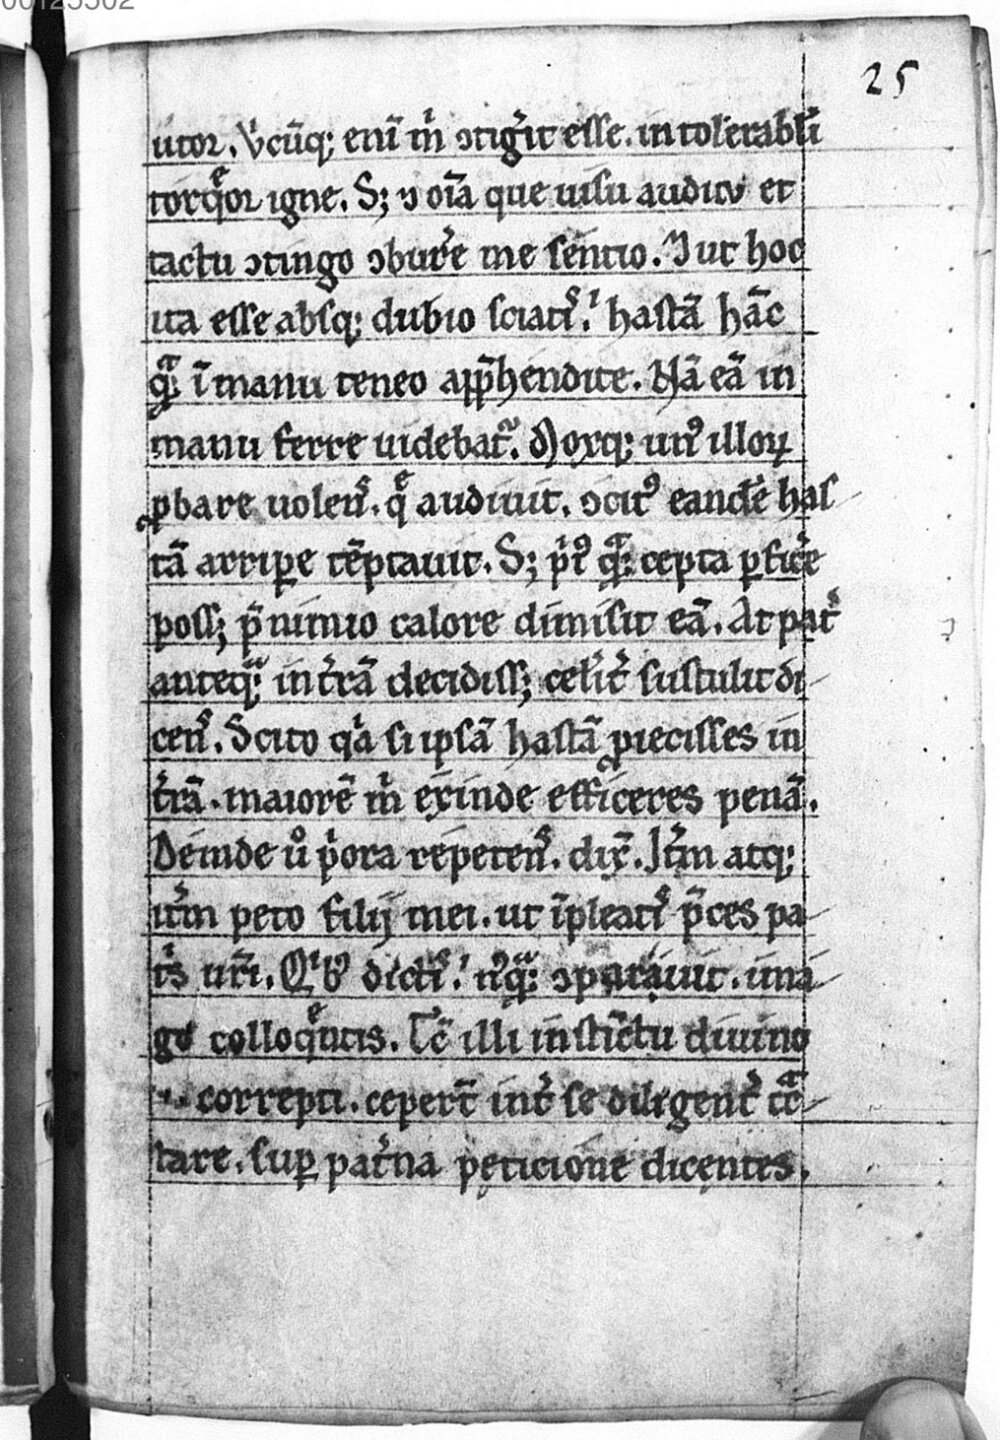 00125502
25
utor. Vcūq; eni̅ m̍ ↄtig̍it esse. intol̍erabl̍i
torqͤor igne. S; ⁊ oi̅a que uisu auditv et
tactu ↄtingo ↄbur̍e me sentio. Iut hoc
ita esse absq; dubio sciatiˢ. hastā hāc
qᷓ; i̅ manu teneo app̄hendite. Nā eā in
manu ferre uidebat᷑. Moxq; unꝰ illoꝝ
ꝓbare uolenˢ. qͤ audiuit. ↄcitꝰ eandē has
tā arriꝑe tēptauit. S; p̍ꝰ qᷓ; cepta ꝑfic̍e
poss; p̄ nimio calore dimisit eā. At pat̍
anteqᷓ; in t̍rā decidiss; celit̍ sustulit di
cenˢ. Scito qͥa si ipsā hastā ꝓiecisses in
t̍rā. maiorē m̍ exinde efficeres penā.
Deinde uͦ p̍ora repetenˢ. dix̄. It̍m atq;
it̍m peto filij mei. ut i̅pleatiˢ p̄ces pa
t̍s ur̄i. Qͥbꝰ dictiˢ. nͣqᷓ; ↄparauit. ima
go colloqͤntis. Tc̄ illi instinctu diuino
correpti. ceper̄t int̍ se diligent̍ tͣc
tare. suꝑ pat̍na peticione dicentes.